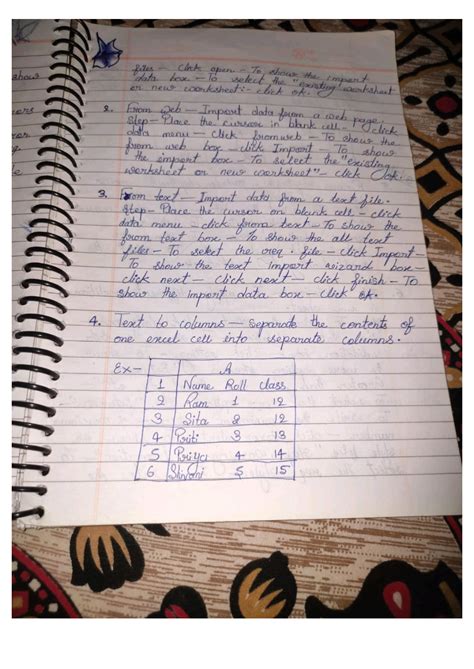 files - Click open - To show the import
data box - To select the "existing worksheet
or new worksheet - click ok.
2. From web - Import data from a web page.
Step - Place the cursor in blank cell - click
data menu - Click from web - To show the
from web box - click Import - To show
the import box - To select the "existing
worksheet or new worksheet" - click Ok
3. From text - Import data from a text file.
Step - Place the cursor on blank cell - click
data menu - click from text - To show the
from text box - To show the all text
files - To select the req. file - click Import
To show the text import wizard box -
click next - click next - click finish - To
show the import data box - click ok.
4. Text to columns - Separate the contents of
one excel cell into separate columns.
Ex -
A
1 Name Roll Class
2 Ram 1 12
3 Sita 2 12
4 Priti 3 13
5 Priya 4 14
6 Shivani 5 15